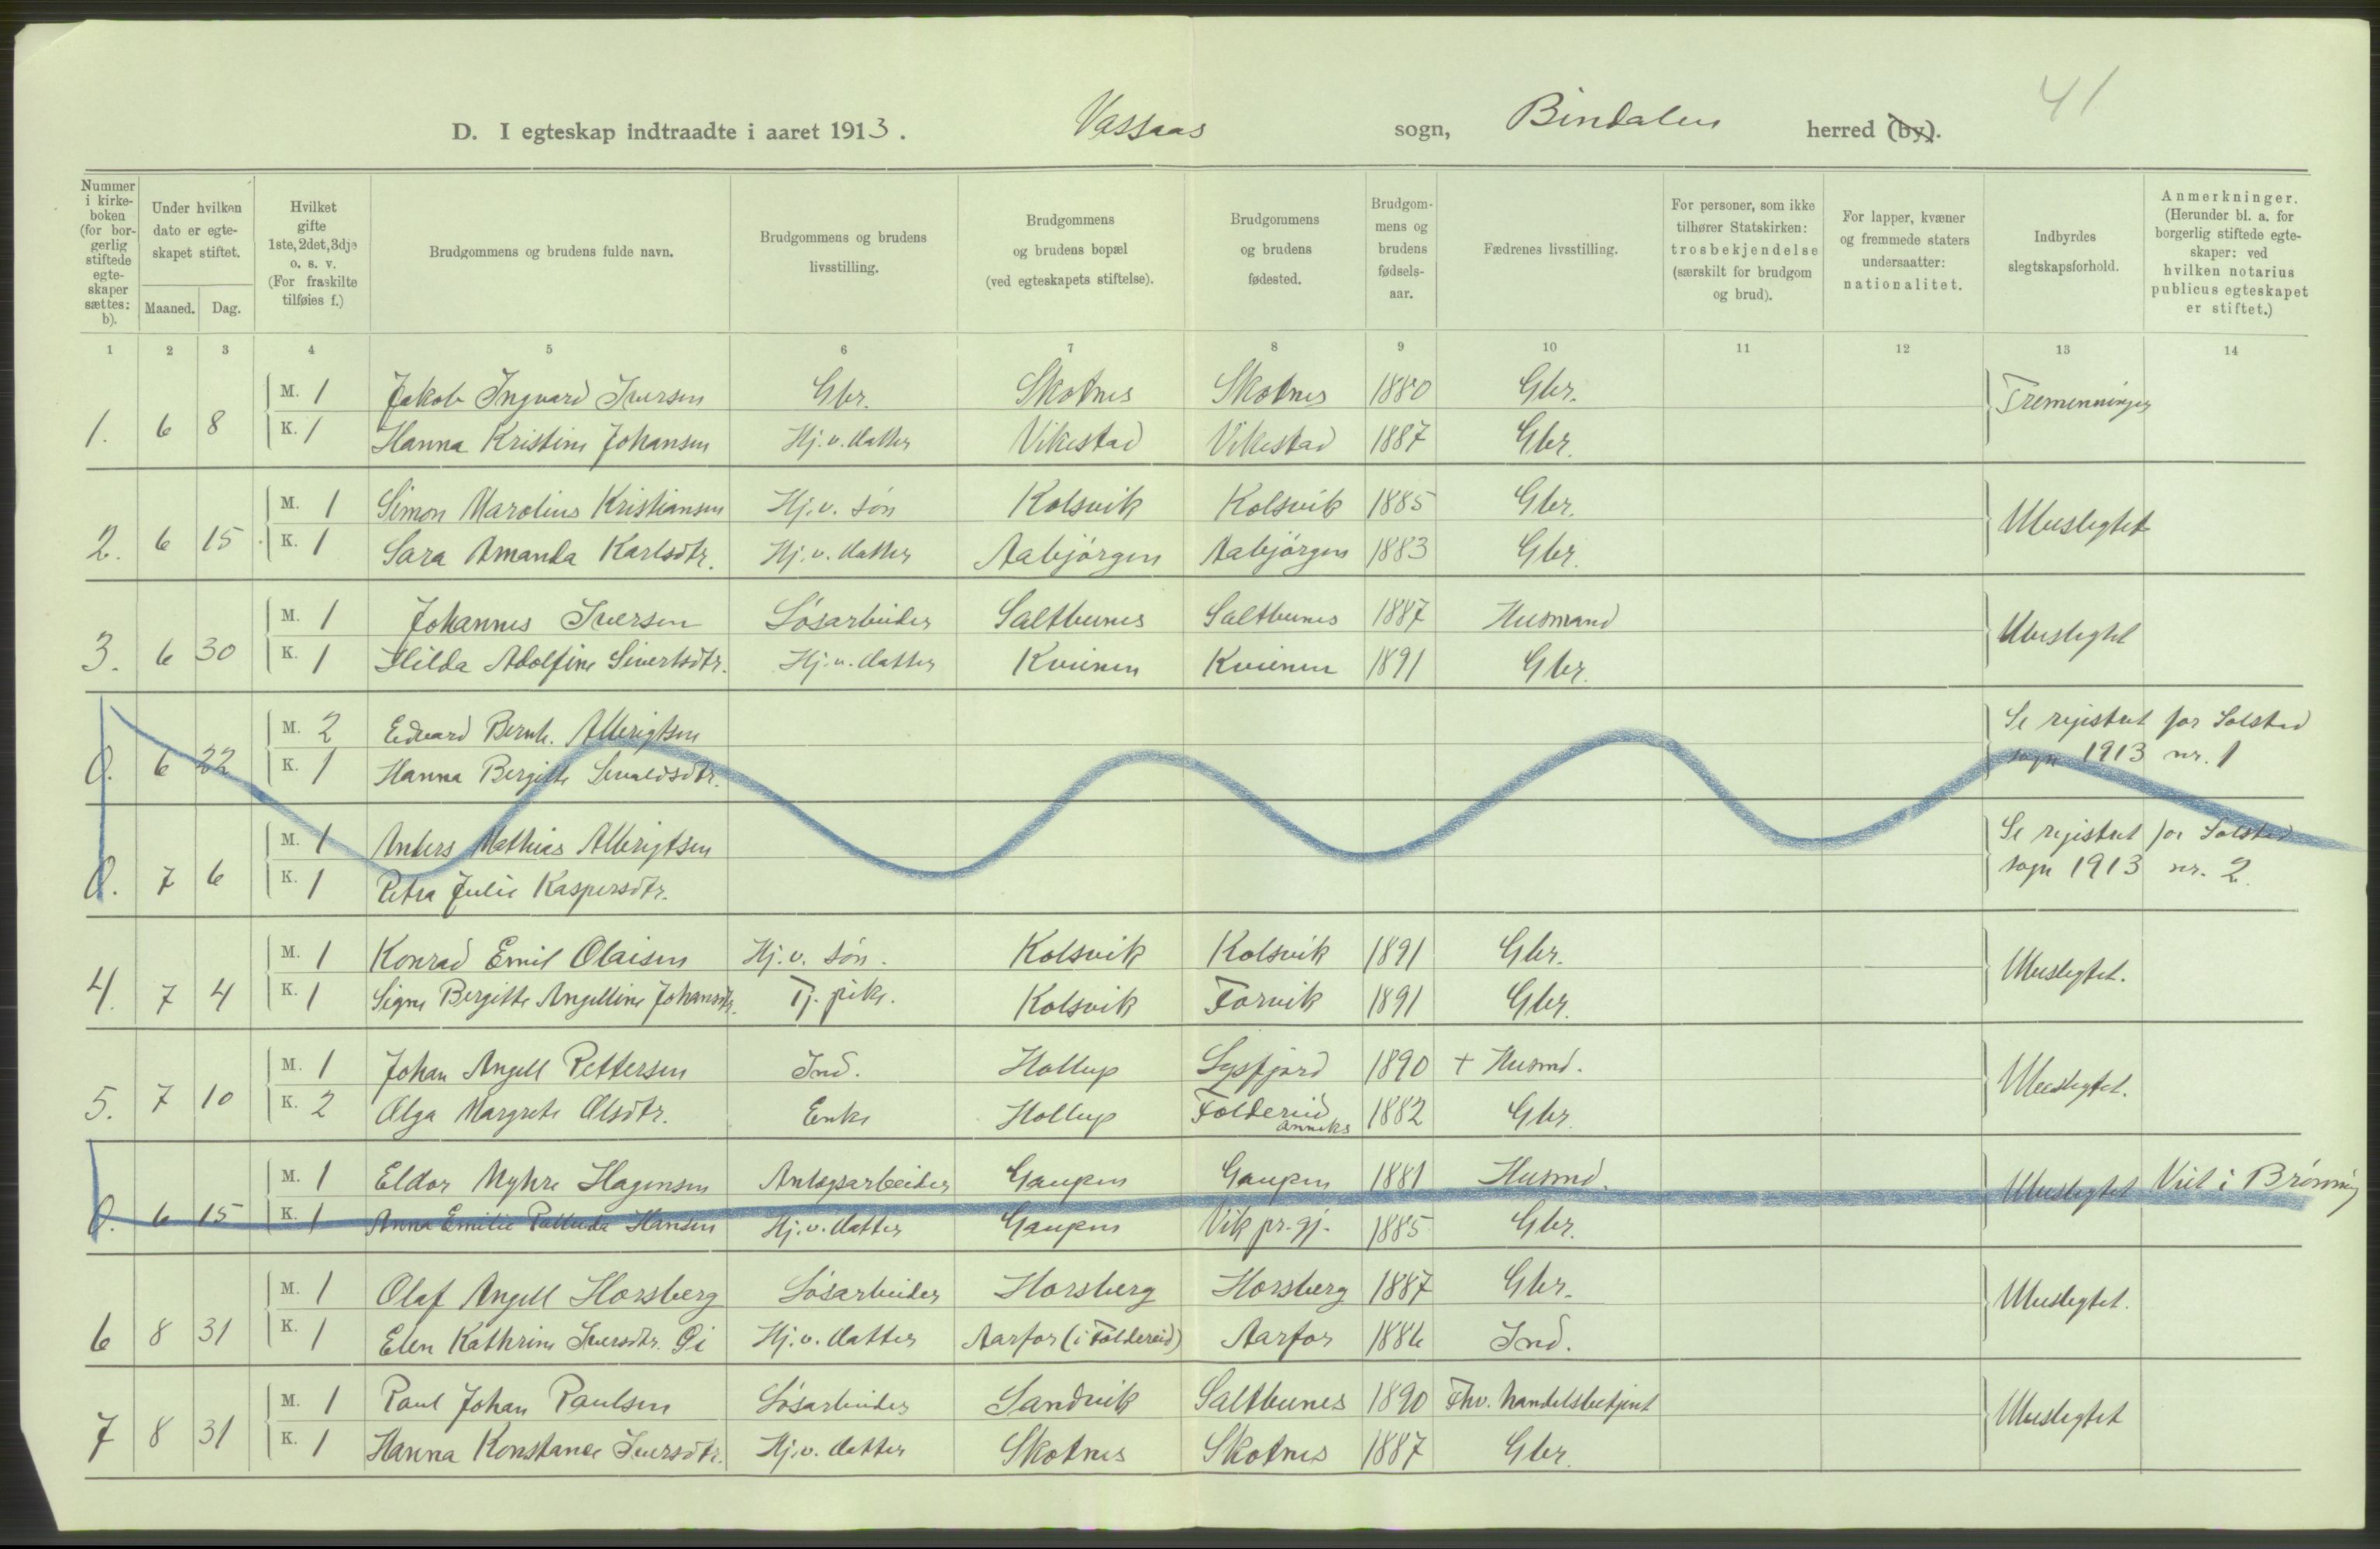 41
D. I egteskap indtraadte i aaret 1913. Vassaas sogn, Bindalen herred (by).
Nummer i kirkeboken (for borgerlig stiftede egteskaper sættes: b).
Under hvilken dato er egteskapet stiftet.
Maaned. Dag.
Hvilket gifte 1ste, 2det, 3dje o. s. v. (For fraskilte tilføies f.)
Brudgommens og brudens fulde navn.
Brudgommens og brudens livsstilling.
Brudgommens og brudens bopæl (ved egteskapets stiftelse).
Brudgommens og brudens fødested.
Brudgommens og brudens fødselsaar.
Fædrenes livsstilling.
For personer, som ikke tilhører Statskirken: trosbekjendelse (særskilt for brudgom og brud).
For lapper, kvæner og fremmede staters undersaatter: nationalitet.
Indbyrdes slegtskapsforhold.
Anmerkninger. (Herunder bl. a. for borgerlig stiftede egteskaper: ved hvilken notarius publicus egteskapet er stiftet.)
1 2 3 4 5 6 7 8 9 10 11 12 13 14
M. 1 Jakob Ingvard Iversen Gbr. Skotnes Skotnes 1880 Gbr. Tremenninger
1. 6 8 K. 1 Hanna Kristine Johansen Hj.v. datter Vikestad Vikestad 1887 Gbr.
M. 1 Simon Marolius Kristiansen Hj.v. søn Kolsvik Kolsvik 1885 Gbr. Ubeslegtet
2. 6 15 K. 1 Sara Amanda Karlsdtr. Hj.v. datter Aabjørgen Aabjørgen 1883 Gbr.
M. 1 Johannes Iversen Løsarbeider Saltbunes Saltbunes 1887 Husmand Ubeslegtet
3. 6 30 K. 1 Hilda Adolfine Sivertsdtr. Hj.v. datter Kveinen Kveinen 1891 Gbr.
M. 2 Edvard Bernh. Albrigtsen Se registret for Solstad
0. 6 22 K. 1 Hanna Bergitte Sevaldsdtr. sogn 1913 nr. 1
M. 1 Anders Mathias Albrigtsen Se registret for Solstad
0. 7 6 K. 1 Petra Julie Kaspersdtr. sogn 1913 nr. 2.
M. 1 Konrad Emil Olaisen Hj.v. søn. Kolsvik Kolsvik 1891 Gbr. Ubeslegtet.
4. 7 4 K. 1 Signe Bergitte Angelline Johansdtr. Tj. pike. Kolsvik Forvik 1891 Gbr.
M. 1 Johan Angell Pettersen Ind. Hollup Lysfjord 1890 + Husmd. Ubeslegtet.
5. 7 10 K. 2 Olga Margrete Olsdtr. Enke Hollup Foldereid anneks 1882 Gbr.
M. 1 Eldor Myhre Hagensen Anlegsarbeider Gaupen Gaupen 1881 Husmd. Ubeslegtet Viet i Brønnø
0. 6 15 K. 1 Anna Emilie Hansen Hj.v. datter Gaupen Vik pr.gj. 1885 Gbr.
M. 1 Olaf Angell Horsberg Løsarbeider Horsberg Horsberg 1887 Gbr. Ubeslegtet.
6 8 31 K. 1 Elen Kathrine Iversdtr. Øi Hj.v. datter Aarfor (i Foldereid) Aarfor 1886 Ind.
M. 1 Paul Johan Paulsen Løsarbeider Sandvik Saltbunes 1890 Fhv. handelsbetjent Ubeslegtet
7 8 31 K. 1 Hanna Konstance Iversdtr. Hj.v. datter Skotnes Skotnes 1887 Gbr.